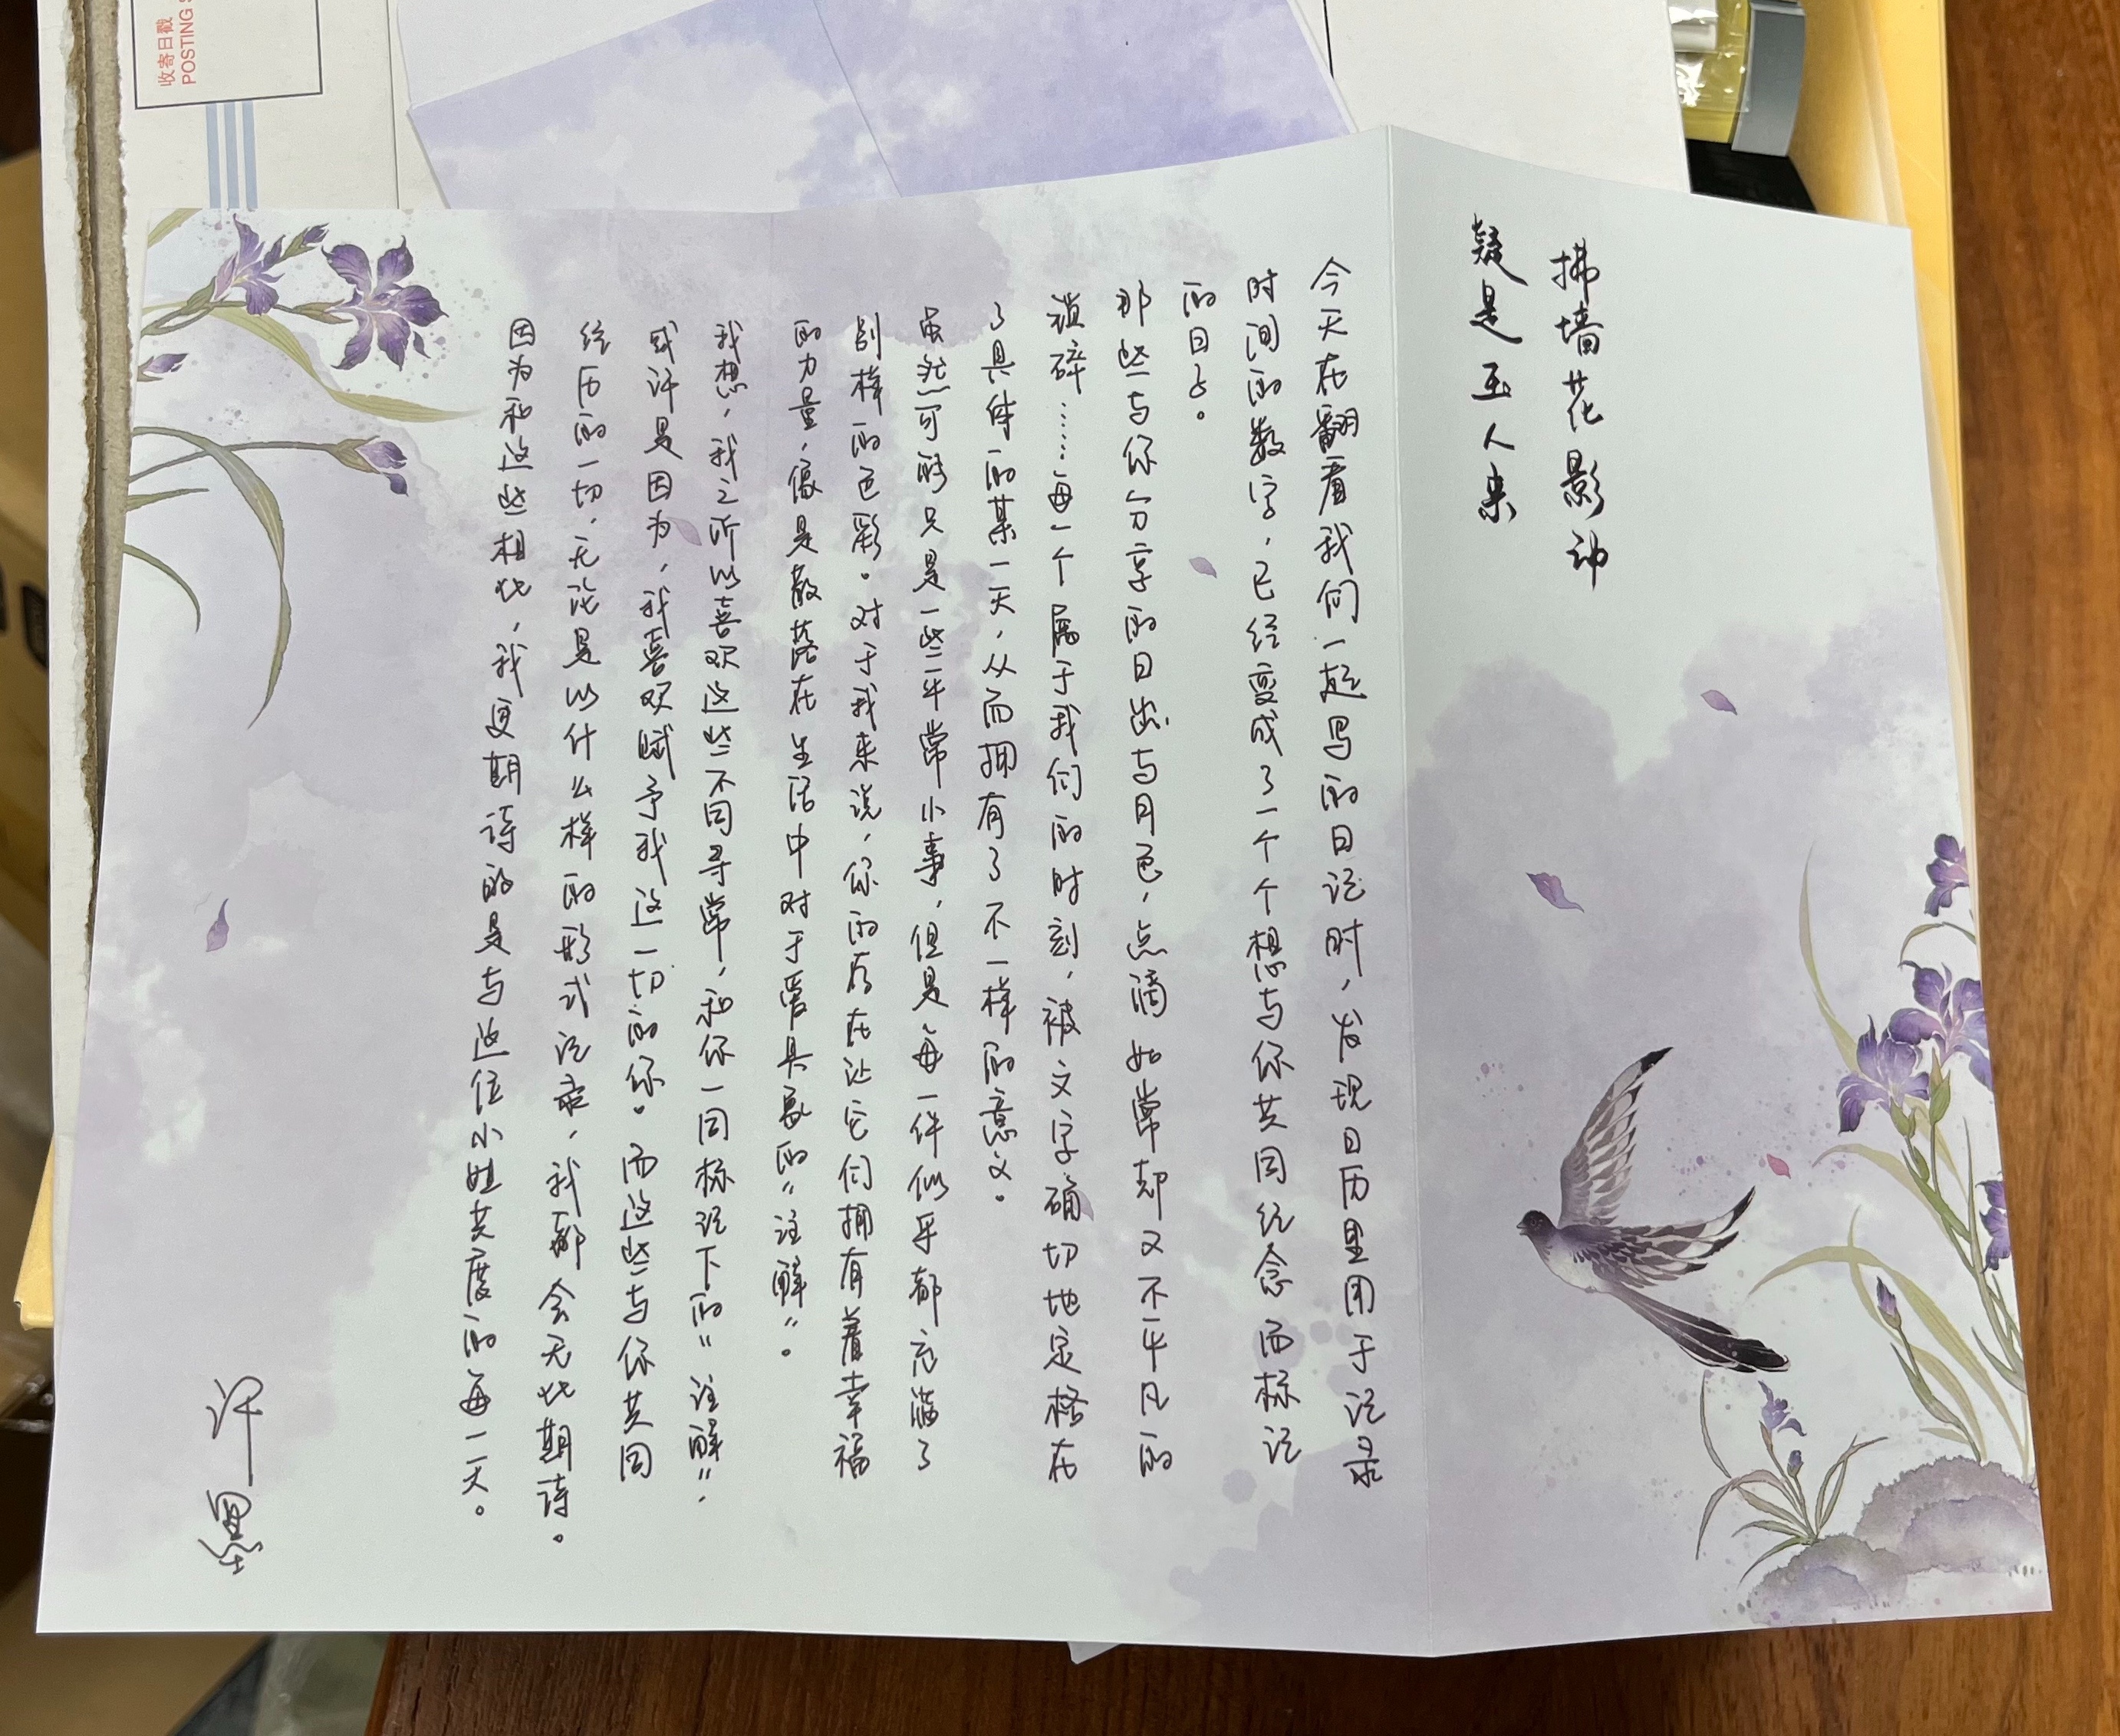 拂墙花影动
疑是玉人来
今天在翻看我们一起写的日记时，发现日历里用于记录
时间的数字，已经变成了一个个想与你共同纪念而标记
的日子。
那些与你分享的日出与月色，点滴如常却又不平凡的
琐碎……每一个属于我们的时刻，被文字确切地定格在
了具体的某一天，从而拥有了不一样的意义。
虽然可能只是一些平常小事，但是每一件似乎都充满了
别样的色彩。对于我来说，你的存在让它们拥有着幸福
的力量，像是散落在生活中对于爱具象的“注解”。
我想，我之所以喜欢这些不同寻常，和你一同标记下的“注解”，
或许是因为，我喜欢赋予我这一切的你。而这些与你共同
经历的一切，无论是以什么样的形式记录，我都会无比期待。
因为和这些相比，我更期待的是与这位小姐共度的每一天。
许墨
收寄日戳
POSTING S